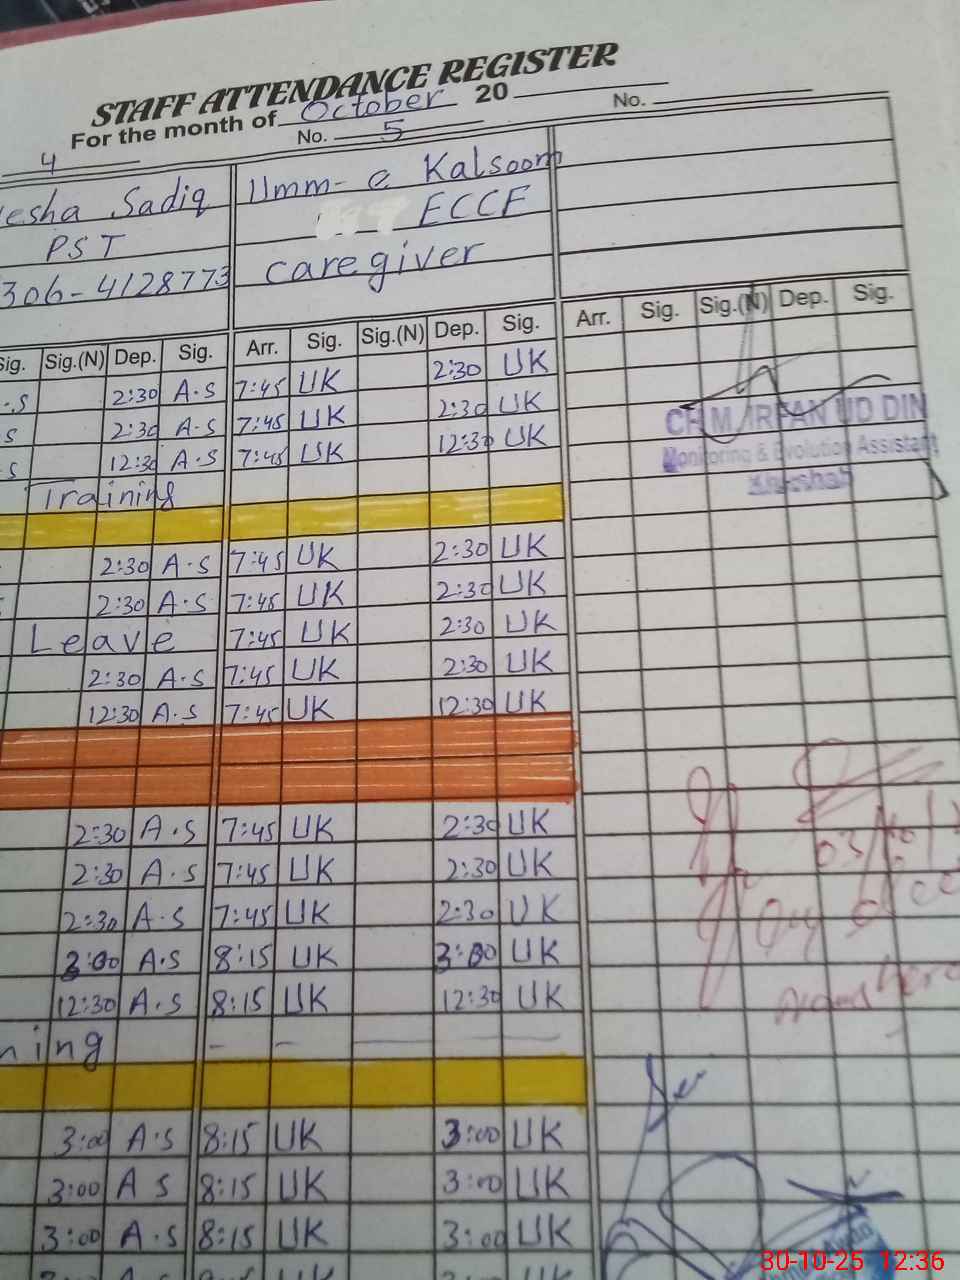 STAFF ATTENDANCE REGISTER
For the month of October 20
4 No. 5 No.
esha Sadiq Umm-e Kalsoom
PST ECCE
306-4128773 caregiver
Sig. Sig.(N) Dep. Sig. Arr. Sig. Sig.(N) Dep. Sig. Arr. Sig. Sig.(N) Dep. Sig.
.S 2:30 A.S 7:45 UK 2:30 UK
S 2:30 A.S 7:45 UK 2:30 UK
S 12:30 A.S 7:45 UK 12:30 UK
Training
2:30 A.S 7:45 UK 2:30 UK
2:30 A.S 7:45 UK 2:30 UK
Leave 7:45 UK 2:30 UK
2:30 A.S 7:45 UK 2:30 UK
12:30 A.S 7:45 UK 12:30 UK
2:30 A.S 7:45 UK 2:30 UK
2:30 A.S 7:45 UK 2:30 UK
2:30 A.S 7:45 UK 2:30 UK
3:00 A.S 8:15 UK 3:00 UK
12:30 A.S 8:15 UK 12:30 UK
ning - - -
3:00 A.S 8:15 UK 3:00 UK
3:00 A S 8:15 UK 3:00 UK
3:00 A.S 8:15 UK 3:00 UK
CH M IRFAN UD DIN
Monitoring & Evolution Assistant
Khushab
30-10-25 12:36